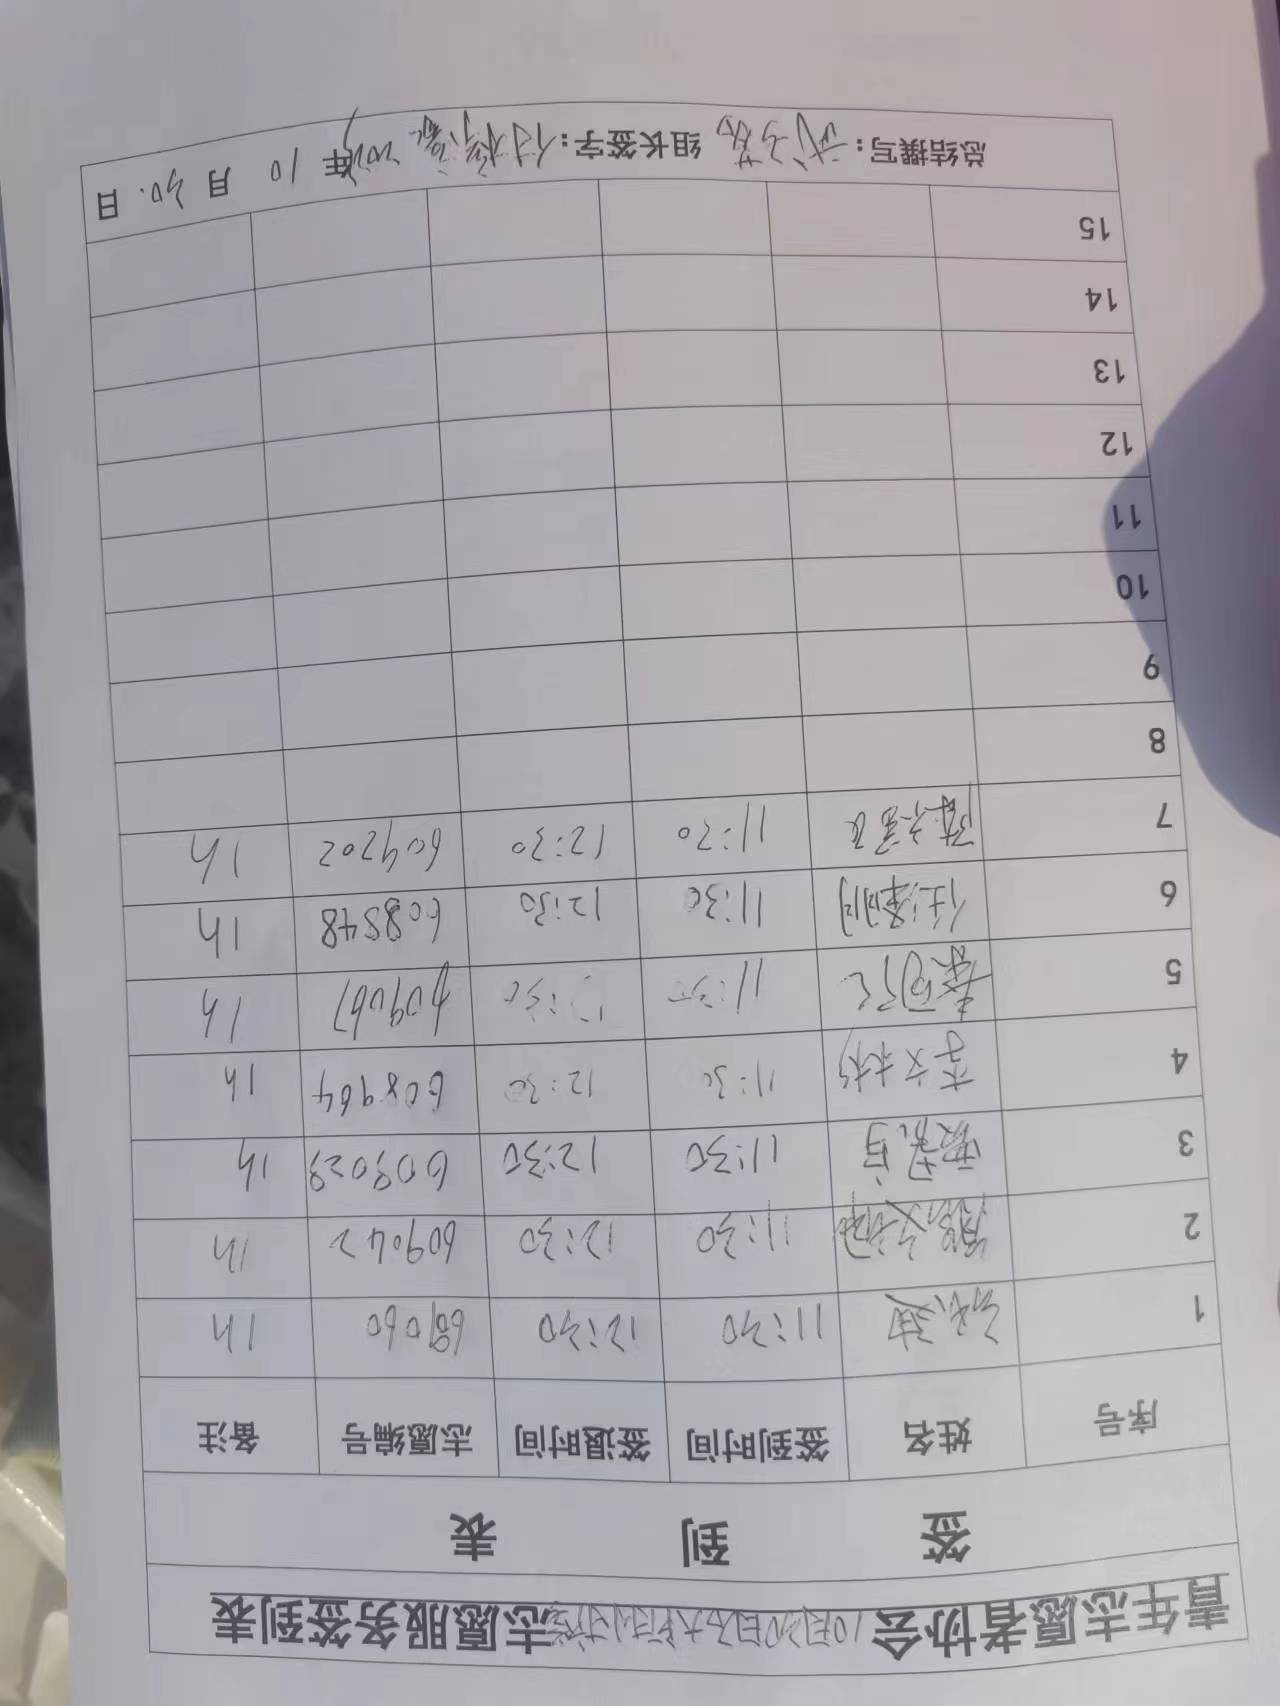 青年志愿者协会10月30日石大附小志愿服务签到表
签 到 表
序号 姓名 签到时间 签退时间 志愿编号 备注
1 11:30 12:30 609060 1h
2 11:30 12:30 609042 1h
3 11:30 12:30 609029 1h
4 李文彬 11:30 12:30 608964 1h
5 秦 11:30 12:30 609067 1h
6 任泽明 11:30 12:30 608548 1h
7 11:30 12:30 609202 1h
8
9
10
11
12
13
14
15
总结撰写： 组长签字： 年 10 月 30 日